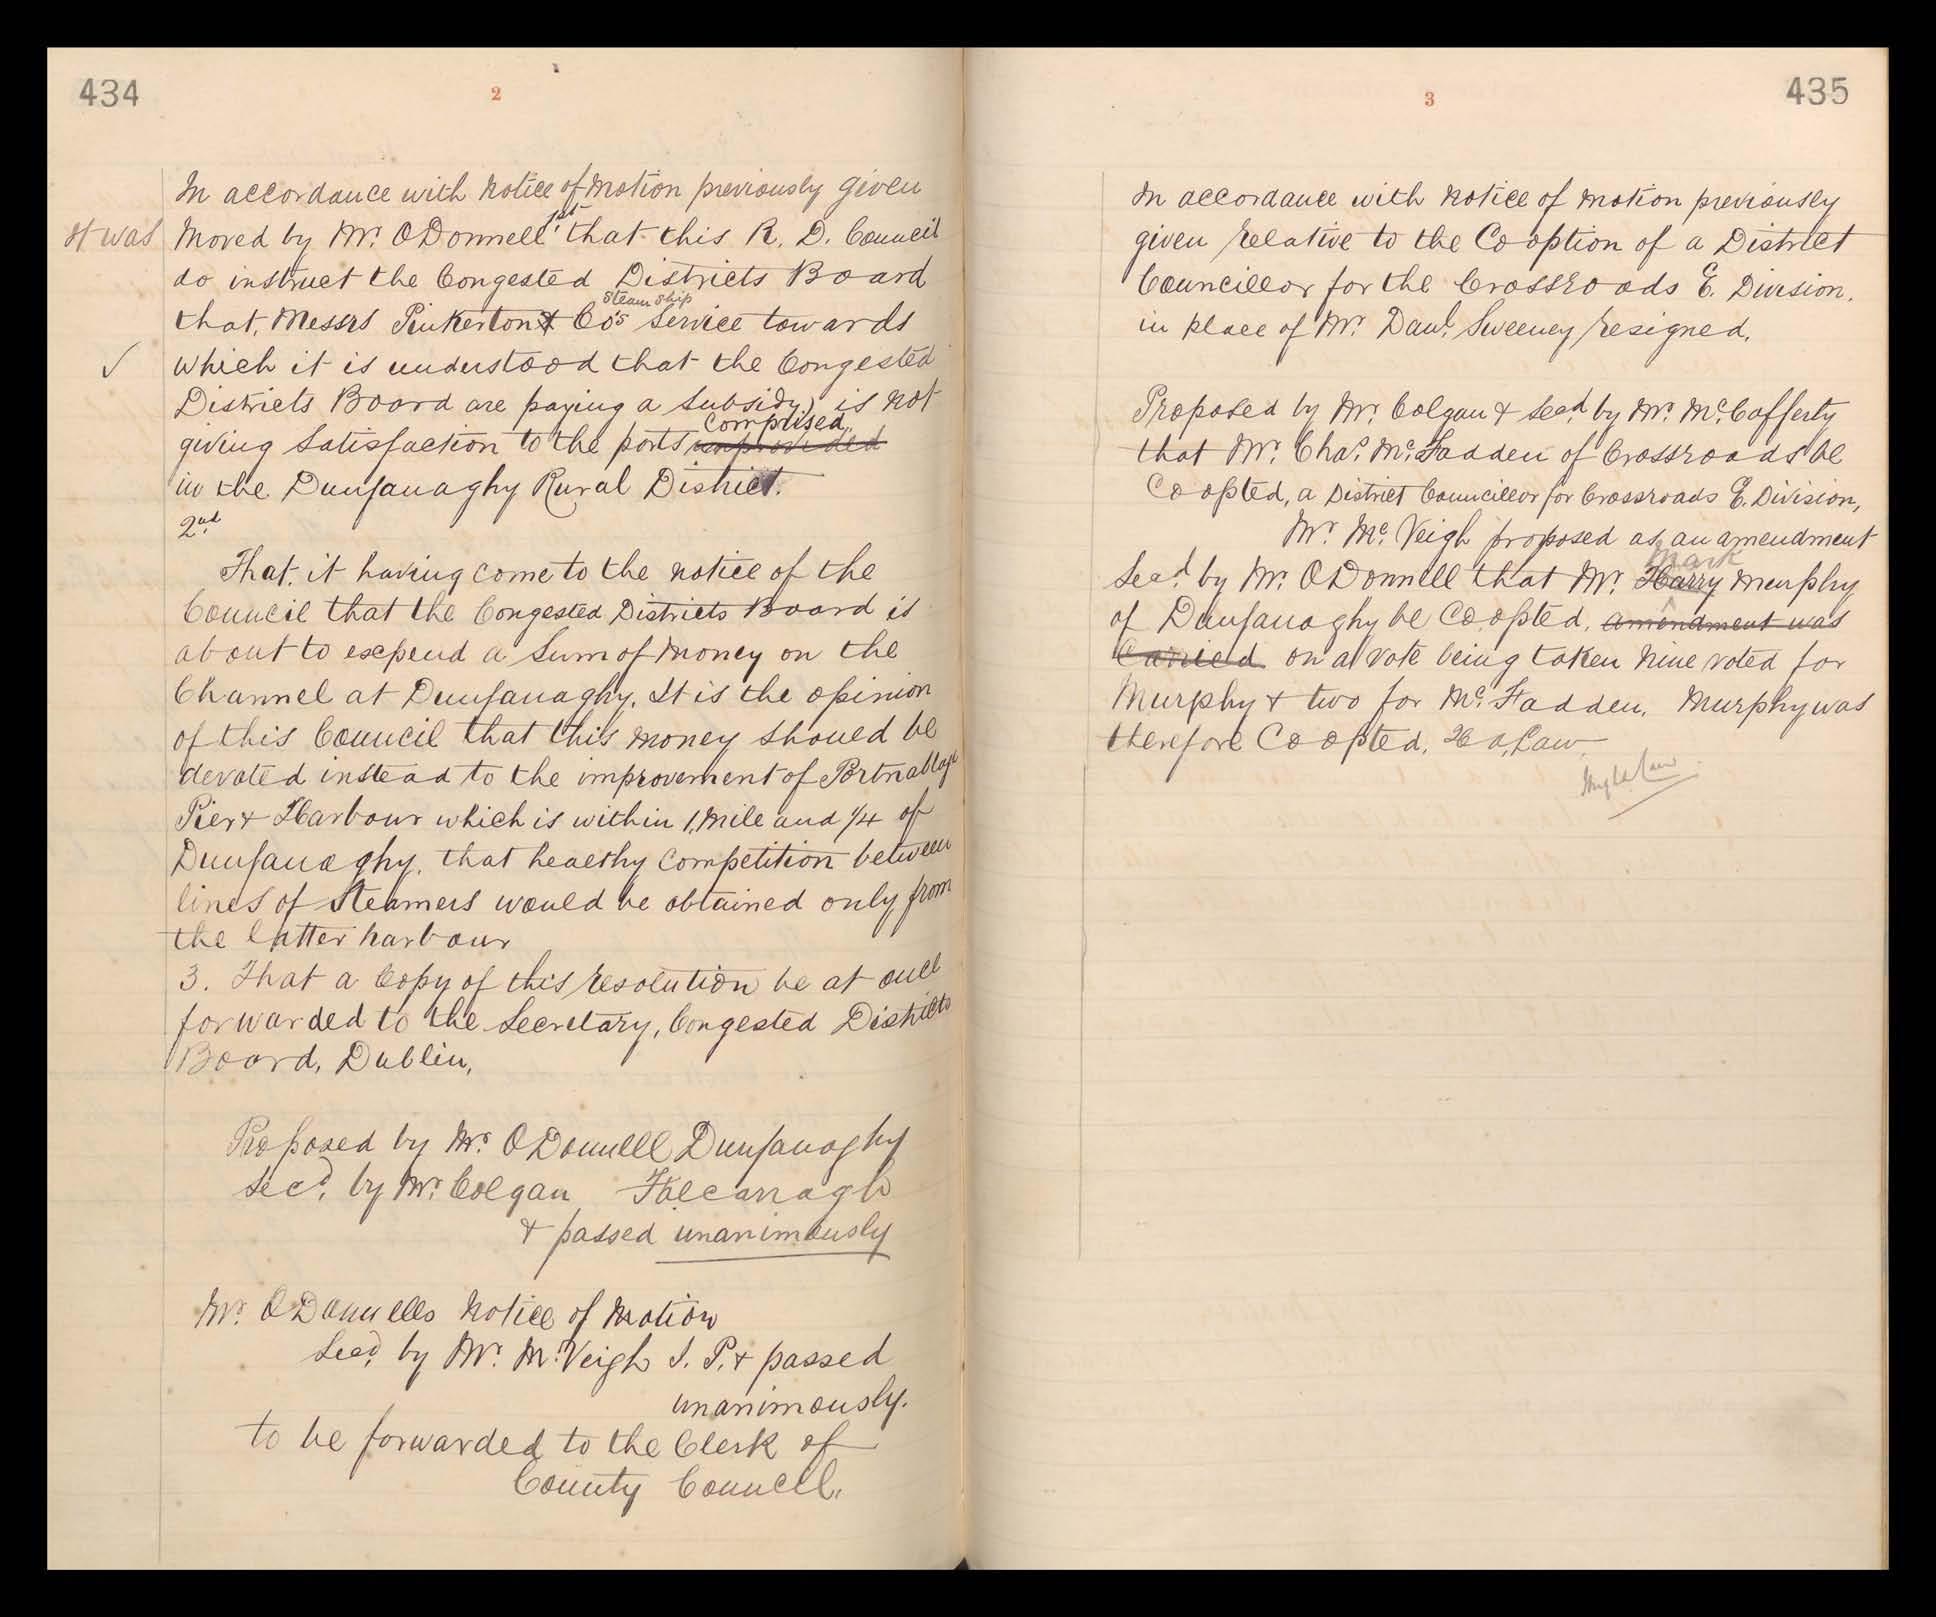 434
2
In accordance with notice of motion previously given
It was Moved by Mr. O'Donnell 1st that this R. D. Council
do instruct the Congested Districts Board
that, Messrs Pinkerton & Co's Steam Ship Service towards
✓ which it is understood that the Congested
Districts Board are paying a subsidy, is not
giving satisfaction to the ports Comprised
in the Dunfanaghy Rural District.
2nd
That, it having come to the notice of the
Council that the Congested Districts Board is
about to expend a sum of money on the
Channel at Dunfanaghy. It is the opinion
of this Council that this money should be
devoted instead to the improvement of Portnablagh
Pier & Harbour which is within 1, mile and 1/4 of
Dunfanaghy, that healthy competition between
lines of steamers would be obtained only from
the latter harbour
3. That a Copy of this resolution be at once
forwarded to the Secretary, Congested Districts
Board, Dublin,
Proposed by Mr. O'Donnell Dunfanaghy
Secd. by Mr. Colgan Falcarragh
& passed unanimously
Mr. O'Donnells notice of motion
Secd. by Mr. McVeigh J. P. & passed
unanimously.
to be forwarded to the Clerk of
County Council.
435
3
In accordance with notice of motion previously
given relative to the Co option of a District
Councillor for the Crossroads E. Division.
in place of Mr. Danl. Sweeney resigned.
Proposed by Mr. Colgan & Secd. by Mr. McCafferty
that Mr. Chas. McFadden of Crossroads be
Co opted, a District Councillor for Crossroads E. Division,
Mr. Mc. Veigh proposed as an amendment
Secd. by Mr. O'Donnell that Mr. Harry Mark Murphy
of Dunfanaghy be Co opted, amendment was
Carried on a vote being taken nine voted for
Murphy & two for Mc. Fadden. Murphy was
therefore Co opted, H. A. Law
Hugh Law